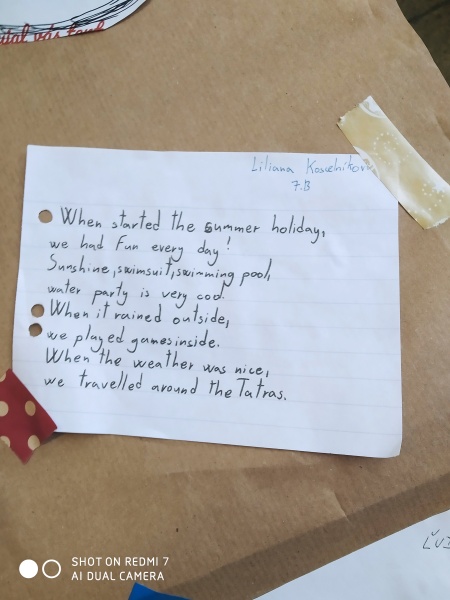 ital vás
Liliana
7.B
When started the summer holiday,
we had fun every day!
Sunshine, swimsuit, swimming pool,
water party is very cool.
When it rained outside,
we played games inside.
When the weather was nice,
we travelled around the Tatras.
SHOT ON REDMI 7
AI DUAL CAMERA